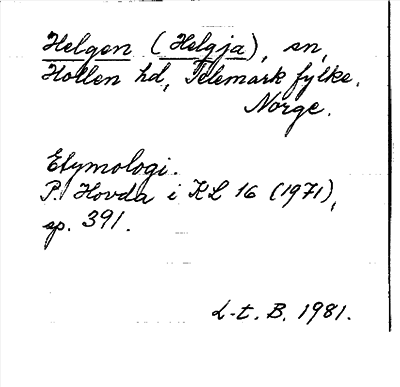 Helgen (Helgja), sn,
Hollen hd, Telemark fylke,
Norge.
Etymologi.
P. Hovda i KL 16 (1971),
sp. 391.
L-t. B. 1981.